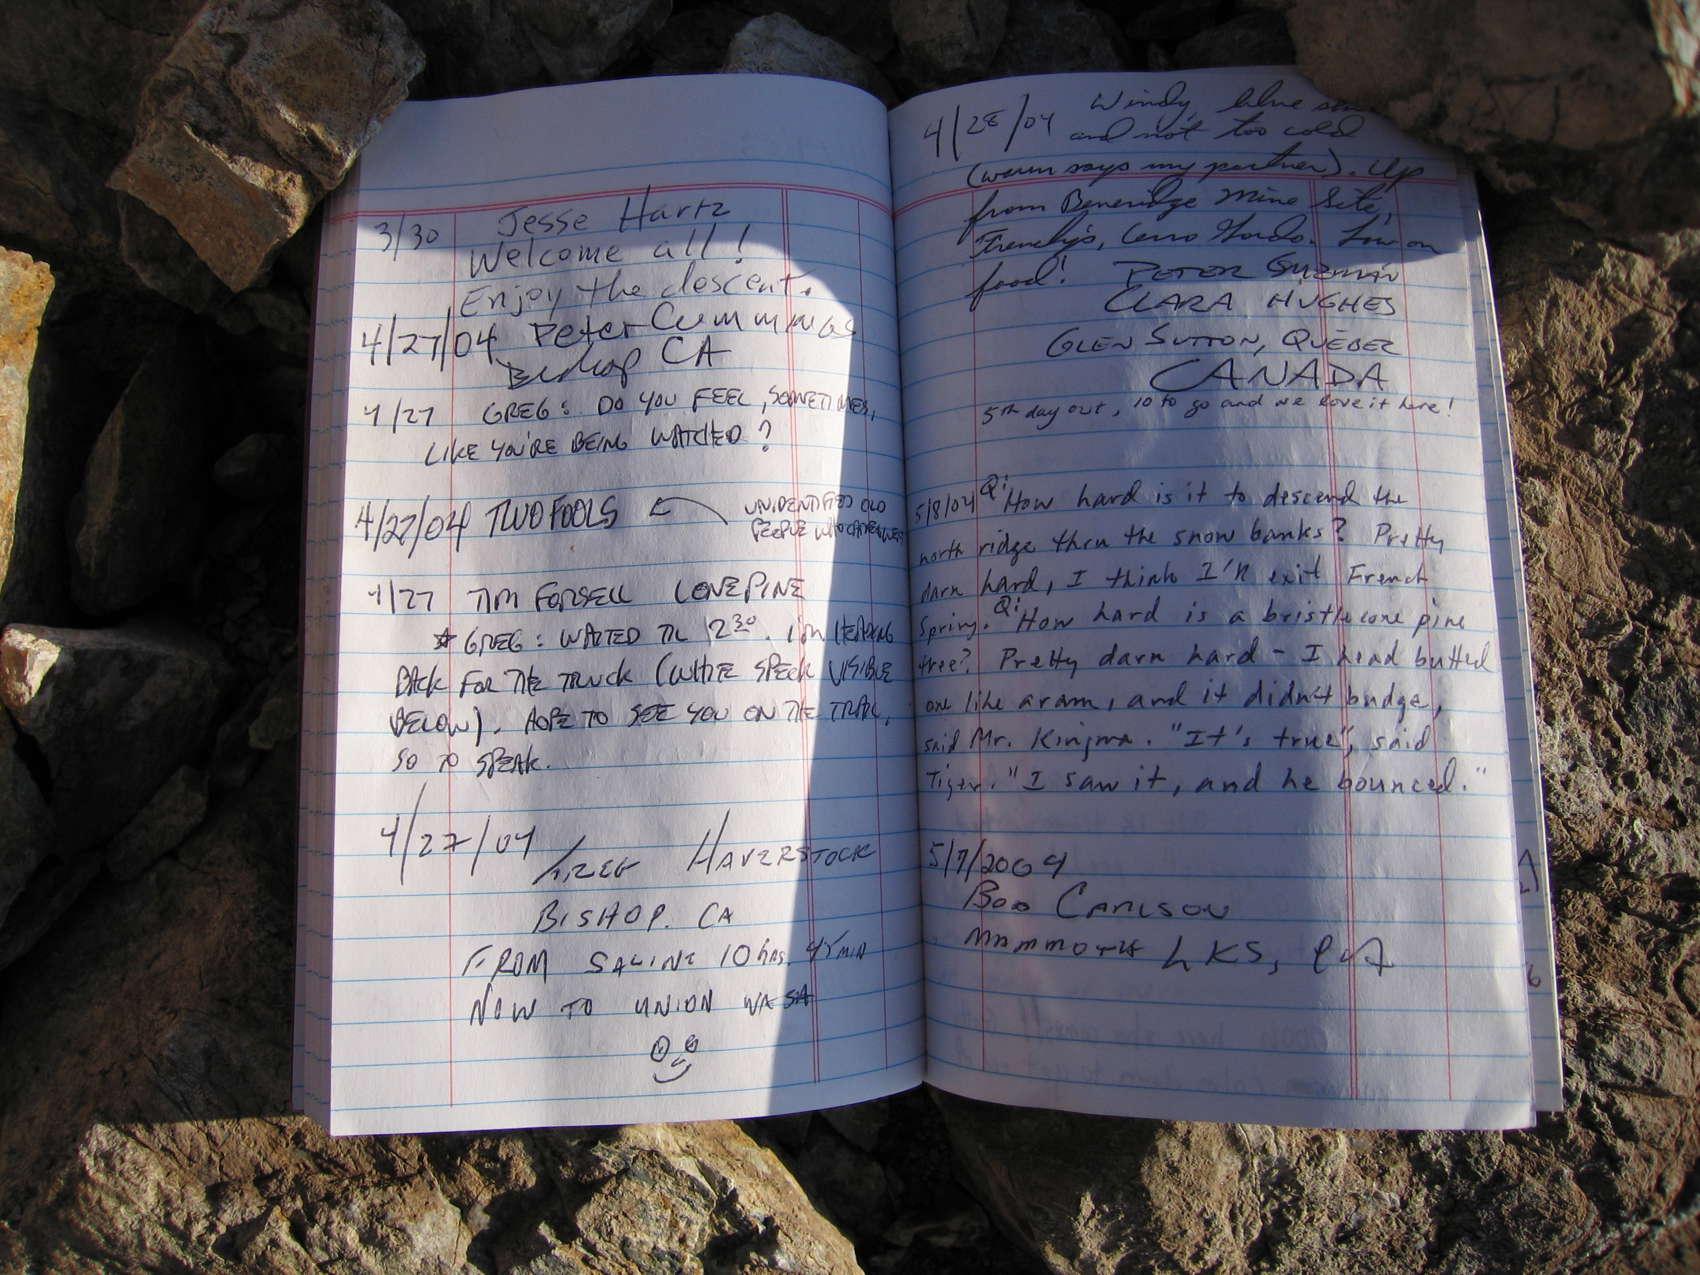 3/30 Jesse Hartz
Welcome all!
Enjoy the descent.
4/27/04 Peter Cummings
Bishop CA
4/27 GREG: DO YOU FEEL, SOMETIMES,
LIKE YOU'RE BEING WATCHED?
4/27/04 TWO FOOLS
UNIDENTIFIED OLD
PEOPLE WHO
4/27 TIM FORSELL LONE PINE
* GREG: WAITED TIL 2:30. I'M HEADING
BACK FOR THE TRUCK (WHITE SPECK VISIBLE
BELOW). HOPE TO SEE YOU ON THE TRAIL,
SO TO SPEAK.
4/27/04 GREG HAVERSTOCK
BISHOP. CA
FROM SALINE 10 hrs, 45 MIN
NOW TO UNION WASH
4/28/04 Windy, blue
and not too cold
(warm says my partner). Up
from Beveridge Mine Site,
Frenchy's, Cerro Gordo. Low on
food! PETER GUZMÁN
CLARA HUGHES
GLEN SUTTON, QUÉBEC
CANADA
5th day out, 10 to go and we love it here!
5/8/04 Q: How hard is it to descend the
north ridge thru the snow banks? Pretty
darn hard, I think I'll exit French
Spring. Q: How hard is a bristlecone pine
tree? Pretty darn hard - I head butted
one like a ram, and it didn't budge,
said Mr. Kinjma. "It's true", said
Tiger. "I saw it, and he bounced."
5/7/2004
Bob Carlson
MAMMOTH LKS, CA